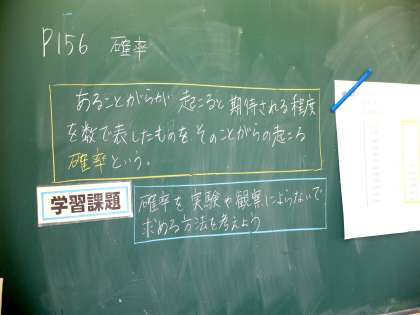 P156 確率
あることがらが 起こると期待される程度
を数で表したものを そのことがらの起こる
確率という。
学習課題
確率を実験や観察によらないで
求める方法を考えよう